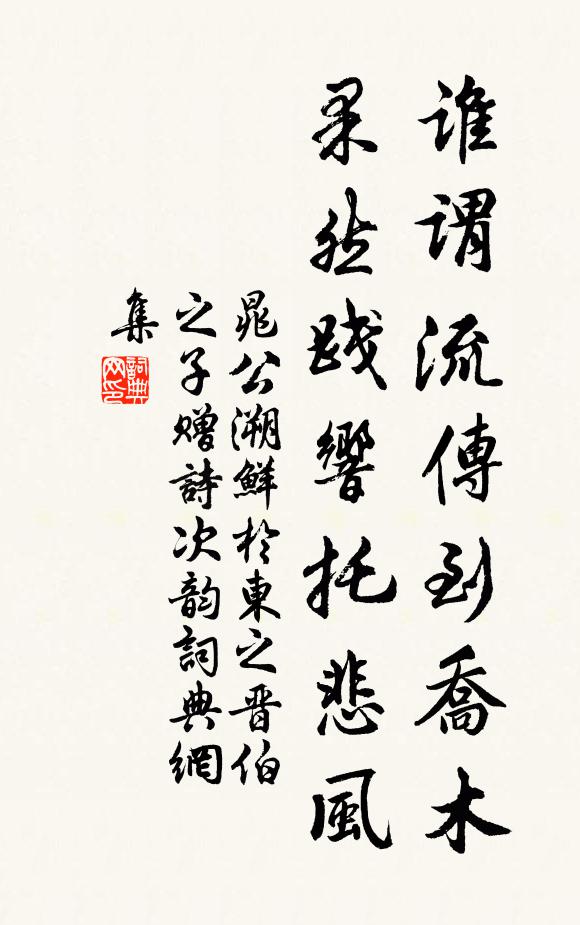 誰謂流傳到喬木
果然踐響托悲風
晁公溯鮮於東之晋伯
之子贈詩次韵詞典網
集
詞典网印